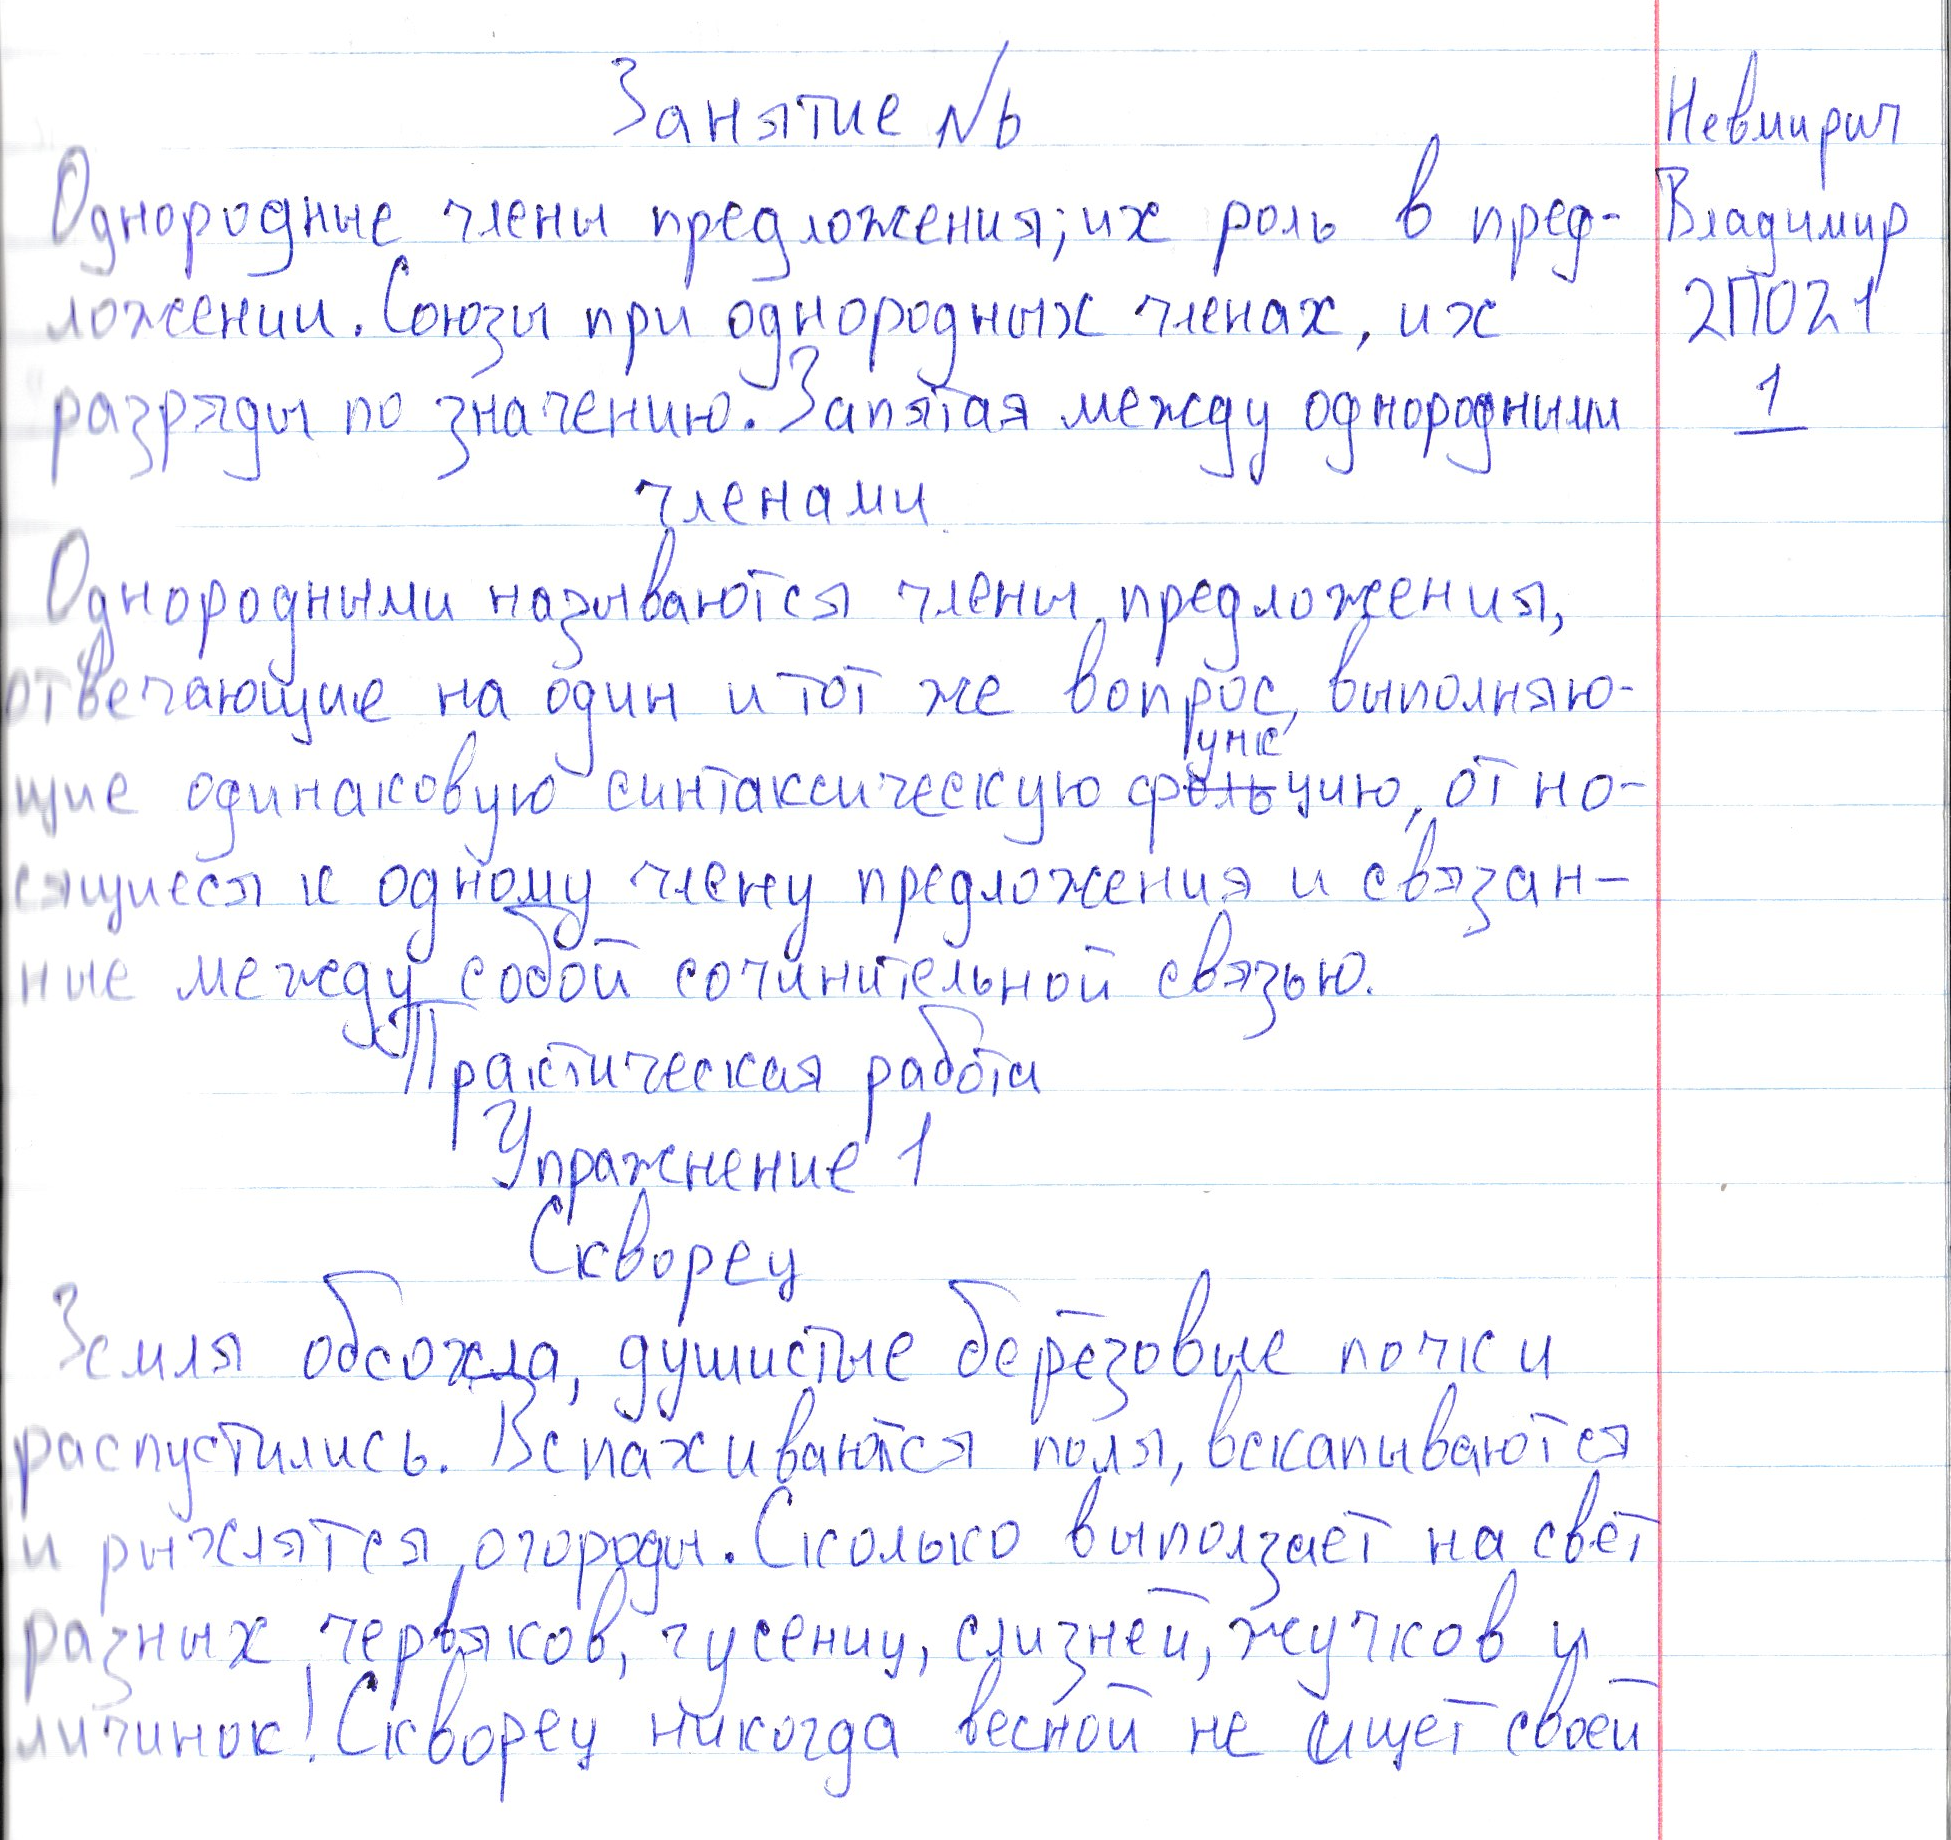 Занятие №6
Однородные члены предложения; их роль в пред-
ложении. Союзы при однородных членах, их
разряды по значению. Запятая между однородными
членами
Однородными называются члены предложения,
отвечающие на один и тот же вопрос, выполняю-
щие одинаковую синтаксическую функцию, отно-
сящиеся к одному члену предложения и связан-
ные между собой сочинительной связью.
Практическая работа
Упражнение 1
Скворец
Земля обсохла, душистые берёзовые почки
распустились. Вспахиваются поля, вскапываются
и рыхлятся огороды. Сколько выползает на свет
разных червяков, гусениц, слизней, жучков и
личинок! Скворец никогда весной не ищет своей
Невмирич
Владимир
2ПО21
1